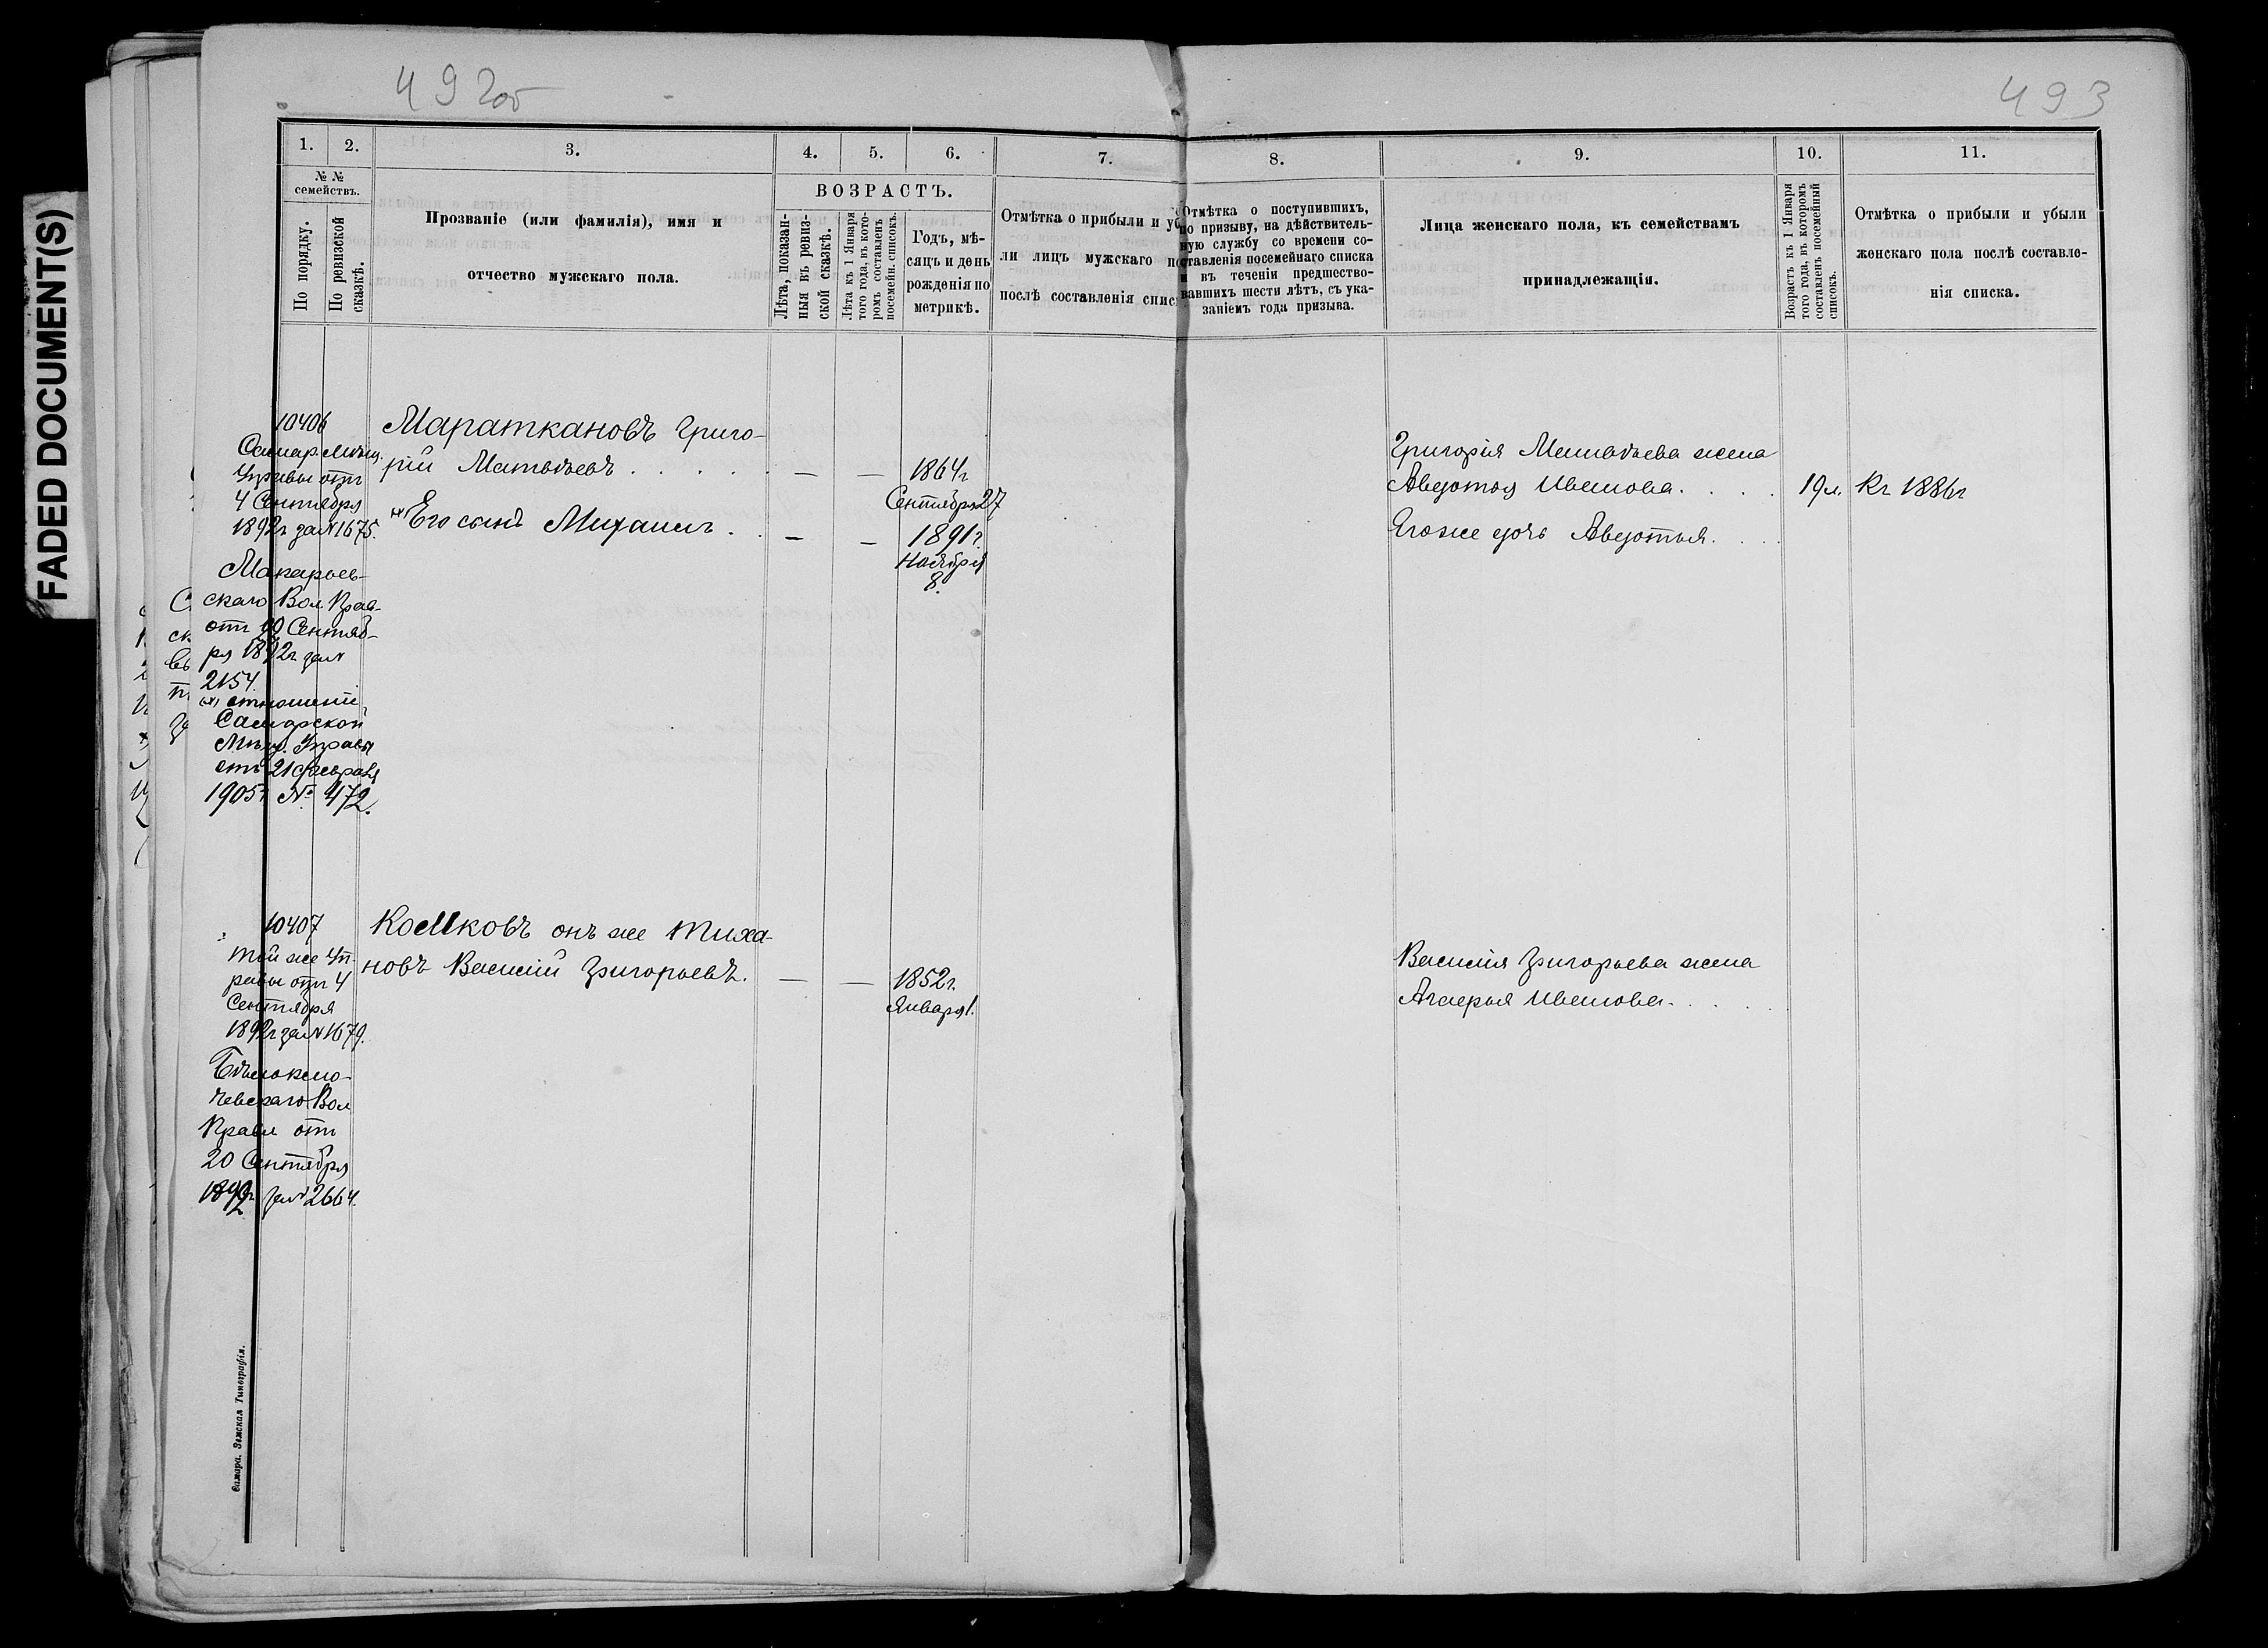 FADED DOCUMENT(S)
492об
493
1. 2. 3. 4. 5. 6. 7. 8. 9. 10. 11.
№ №
семействъ.
По порядку.
По ревизской
сказкѣ.
Прозваніе (или фамилія), имя и
отчество мужскаго пола.
ВОЗРАСТЪ.
Лѣта, показан-
ныя въ ревиз-
ской сказкѣ.
Лѣта къ 1 Января
того года, въ кото-
ромъ составленъ
посемейн. списокъ.
Годъ, мѣ-
сяцъ и день
рожденія по
метрикѣ.
Отмѣтка о прибыли и уб
ли лицъ мужскаго по
послѣ составленія спис
Отмѣтка о поступившихъ,
по призыву, на дѣйствитель-
ную службу со времени со-
ставленія посемейнаго списка
и въ теченіи предшество-
вавшихъ шести лѣтъ, съ ука-
заніемъ года призыва.
Лица женскаго пола, къ семействамъ
принадлежащія.
Возрастъ къ 1 Января
того года, въ которомъ
составленъ посемейный
списокъ.
Отмѣтка о прибыли и убыли
женскаго пола послѣ составле-
нія списка.
10406
Самар. Мѣщ.
Управы отъ
4 Сентября
1892г за № 1675.
Макарьев-
скаго Вол. Прав-
отъ 20 Сентяб-
ря 1892г за №
2154.
(х) отношеніи
Самарской
Мѣщ. Управы
отъ 21 февраля
1905г № 472.
Мараткановъ Григо-
рій Матвѣевъ . . . . . — —
1864г
Сентября 27
(х) Его сынъ Михаилъ . . — —
1891г.
Ноября
8.
Григорія Матвѣева жена
Авдотья Иванова. . . . . 19л. Кг 1886г
Егоже дочь Авдотья. . . .
10407
той же Уп-
равы отъ 4
Сентября
1892г за № 1679.
Бѣлоклю-
чевскаго Вол
Правл отъ
20 Сентября
1892г за № 2664.
Комковъ онъ же Тиха-
новъ Василій Григорьевъ. — —
1852г.
Января 1.
Василія Григорьева жена
Агаѳрья Иванова. . . . .
Самара. Земская Типографія.